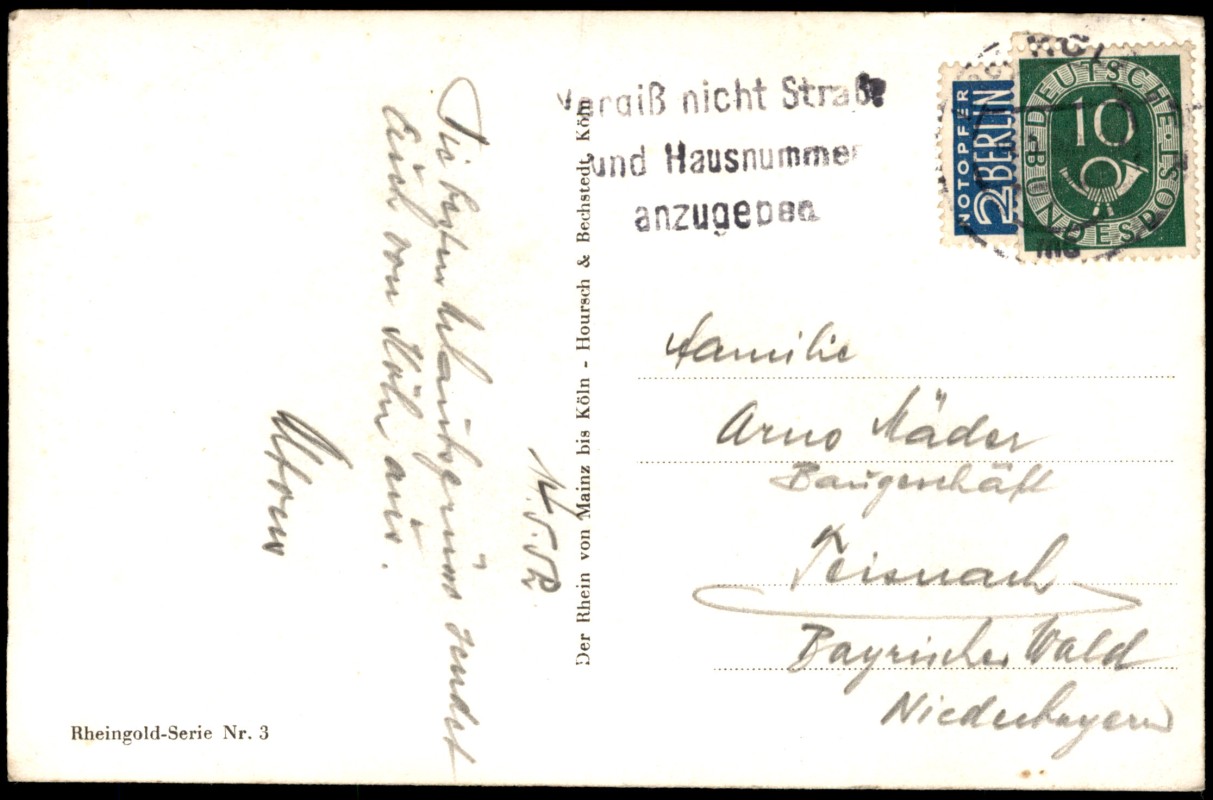 14.5.52.
Die besten Urlaubsgrüsse sendet
Euch von Köln aus.
Der Rhein von Mainz bis Köln - Hoursch & Bechstedt, Köln
Rheingold-Serie Nr. 3
Vergiß nicht Straße
und Hausnummer
anzugeben
NOTOPFER
2 BERLIN
DEUTSCHE BUNDESPOST
10
Familie
Arno Mäder
Baugeschäft
Teisnach
Bayrischer Wald
Niederbayern